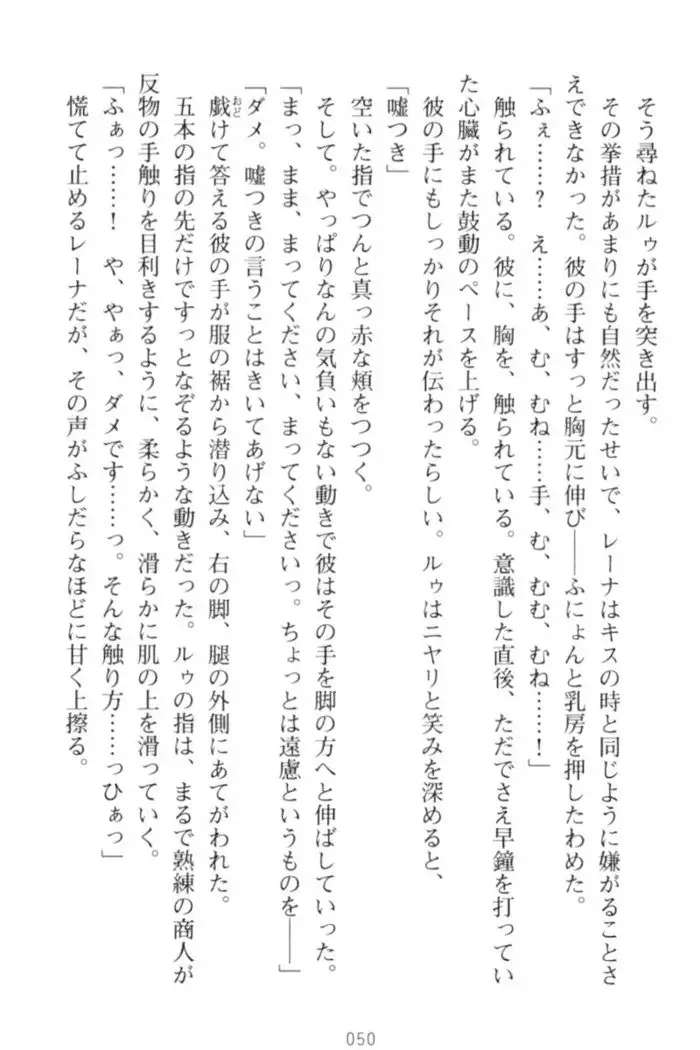 そう尋ねたルゥが手を突き出す。
その挙措があまりにも自然だったせいで、レーナはキスの時と同じように嫌がることさ
えできなかった。彼の手はすっと胸元に伸び――ふにょんと乳房を押したわめた。
「ふぇ……？　え……あ、む、むね……手、む、むむ、むね……！」
触られている。彼に、胸を、触られている。意識した直後、ただでさえ早鐘を打ってい
た心臓がまた鼓動のペースを上げる。
彼の手にもしっかりそれが伝わったらしい。ルゥはニヤリと笑みを深めると、
「嘘つき」
空いた指でつんと真っ赤な頬をつつく。
そして。やっぱりなんの気負いもない動きで彼はその手を脚の方へと伸ばしていった。
「まっ、まま、まってください、まってくださいっ。ちょっとは遠慮というものを――」
「ダメ。嘘つきの言うことはきいてあげない」
戯おどけて答える彼の手が服の裾から潜り込み、右の脚、腿の外側にあてがわれた。
五本の指の先だけですっとなぞるような動きだった。ルゥの指は、まるで熟練の商人が
反物の手触りを目利きするように、柔らかく、滑らかに肌の上を滑っていく。
「ふぁっ……！　や、やぁっ、ダメです……っ。そんな触り方……っひぁっ」
慌てて止めるレーナだが、その声がふしだらなほどに甘く上擦る。
050